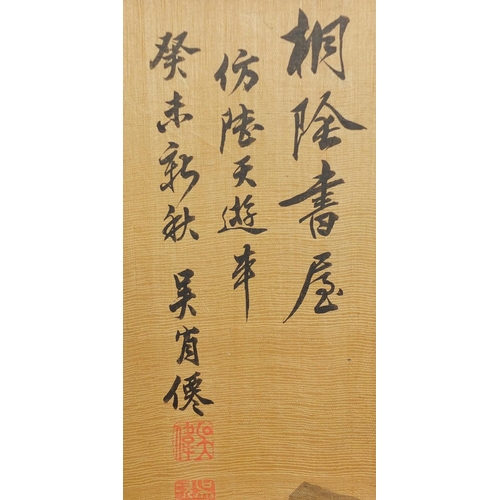 桐陰書屋
仿陸天遊本
癸未新秋 吳肖僊